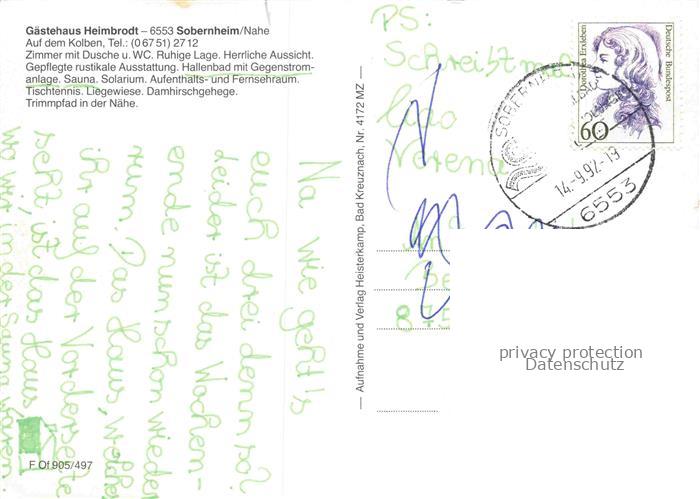 Gästehaus Heimbrodt – 6553 Sobernheim/Nahe
Auf dem Kolben, Tel.: (0 67 51) 27 12
Zimmer mit Dusche u. WC. Ruhige Lage. Herrliche Aussicht.
Gepflegte rustikale Ausstattung. Hallenbad mit Gegenstrom-
anlage. Sauna. Solarium. Aufenthalts- und Fernsehraum.
Tischtennis. Liegewiese. Damhirschgehege.
Trimmpfad in der Nähe.
Na wie geht's
euch drei denn so?
Leider ist das Wochen-
ende nun schon wieder
rum. Das Haus, welches
ihr auf der Vorderseite
seht ist das Haus
wo wir in der Sauna waren.
F Of 905/497
— Aufnahme und Verlag Heisterkamp, Bad Kreuznach, Nr. 4172 MZ —
PS:
Schreibt mal
Verena
875
Deutsche Bundespost
Dorothea Erxleben
60
SOBERNHEIM
14.-9.92-19
6553
privacy protection
Datenschutz